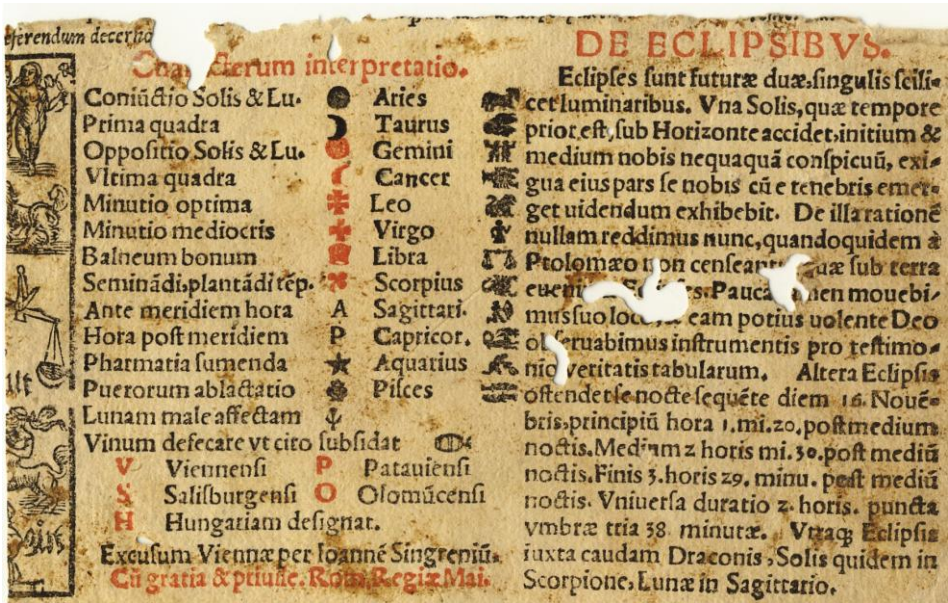 eferendum decer
Characterum interpretatio.
Coniūctio Solis & Lu. Aries
Prima quadra Taurus
Oppositio Solis & Lu. Gemini
Vltima quadra Cancer
Minutio optima Leo
Minutio mediocris Virgo
Balneum bonum Libra
Seminādi,plantādi tēp. Scorpius
Ante meridiem hora A Sagittari.
Hora post meridiem P Capricor.
Pharmatia sumenda Aquarius
Puerorum ablactatio Pisces
Lunam male affectam
Vinum defecare vt cito subsidat
V Viennensi P Patauiensi
S Salisburgensi O Olomūcensi
H Hungariam designat.
Excusum Viennæ per Ioannē Singreniū.
Cū gratia & priuile. Rom. Regiæ Mai.
DE ECLIPSIBVS.
Eclipses sunt futuræ duæ,singulis scili-
cet luminaribus. Vna Solis,quæ tempore
prior est,sub Horizonte accidet,initium &
medium nobis nequaquā conspicuū, exi-
gua eius pars se nobis cū e tenebris emer-
get uidendum exhibebit. De illa rationē
nullam reddimus nunc,quandoquidem à
Ptolomæo non censeant quæ sub terra
Pauca mouebi-
mus suo loco eam potius uolente Deo
obseruabimus instrumentis pro testimo-
nio ueritatis tabularum. Altera Eclipsis
ostendet se nocte sequēte diem 16. Nouē-
bris,principiū hora 1.mi.20,post medium
noctis.Medium 2 horis mi. 30.post mediū
noctis.Finis 3.horis 29. minu. post mediū
noctis. Vniuersa duratio 2. horis. puncta
vmbræ tria 38. minutæ. Vtraq; Eclipsis
iuxta caudam Draconis,Solis quidem in
Scorpione, Lunæ in Sagittario.